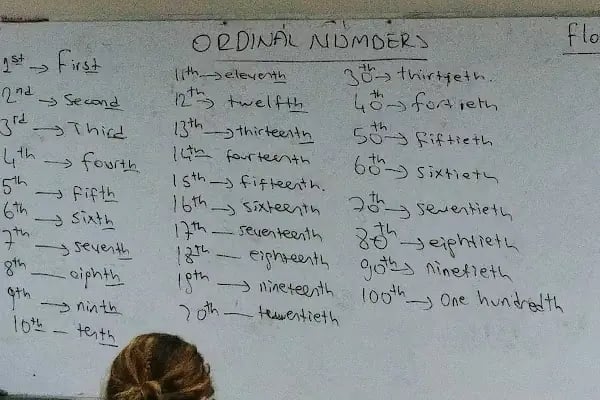 ORDINAL NUMBERS
flo
1st → first
2nd → second
3rd → Third
4th → fourth
5th → fifth
6th → sixth
7th → seventh
8th — eighth
9th → ninth
10th — tenth
11th → eleventh
12th → twelfth
13th → thirteenth
14th fourteenth
15th → fifteenth.
16th → sixteenth
17th — seventeenth
18th — eighteenth
19th → nineteenth
20th — twentieth
30th → thirtyeth.
40th → fortieth
50th → fiftieth
60th → sixtieth
70th → seventieth
80th → eightieth
90th → ninetieth
100th → One hundredth